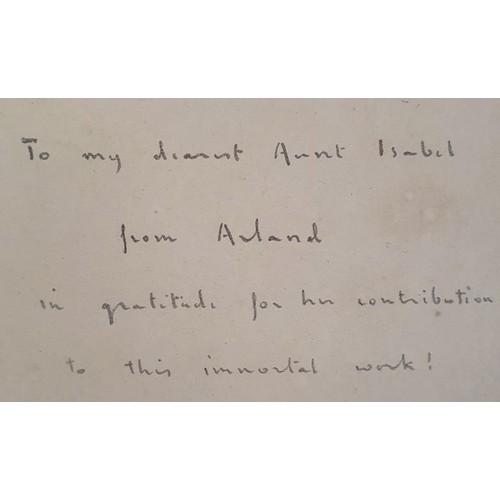 To my dearest Aunt Isabel
from Arland
in gratitude for her contribution
to this immortal work!